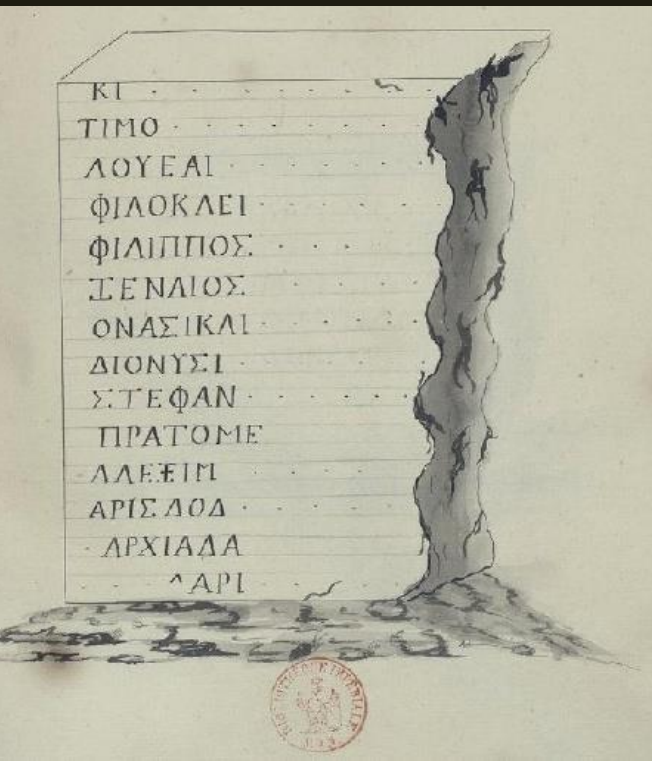 ΚΙ
ΤΙΜΟ
ΛΟΥΕΑΙ
ΦΙΛΟΚΛΕΙ
ΦΙΛΙΠΠΟΣ
ΞΕΝΑΙΟΣ
ΟΝΑΣΙΚΛΙ
ΔΙΟΝΥΣΙ
ΣΤΕΦΑΝ
ΠΡΑΤΟΜΕ
ΑΛΕΞΙΜ
ΑΡΙΣΛΟΔ
ΑΡΧΙΑΔΑ
ΛΑΡΙ